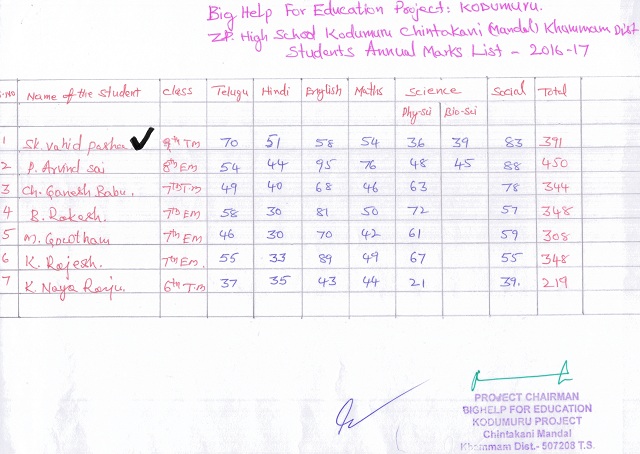 Big Help For Education Project: KODUMURU.
ZP. High School Kodumuru Chintakani (Mandal) Khammam Dist
Students Annual Marks List - 2016-17
S.NO Name of the student Class Telugu Hindi English Maths Science Social Total
Phy-Sci Bio-Sci
1 Sk. Vahid pasha ✓ 9th TM 70 51 58 54 36 39 83 391
2 P. Arvind sai 8th EM 54 44 95 76 48 45 88 450
3 Ch. Ganesh Babu. 7th TM 49 40 68 46 63 78 344
4 B. Rakesh. 7th EM 58 30 81 50 72 57 348
5 M. Gowtham 7th EM 46 30 70 42 61 59 308
6 K. Rajesh. 7th EM. 55 33 89 49 67 55 348
7 K Naga Raju. 6th TM 37 35 43 44 21 39. 219
PROJECT CHAIRMAN
BIGHELP FOR EDUCATION
KODUMURU PROJECT
Chintakani Mandal
Khammam Dist.- 507208 T.S.